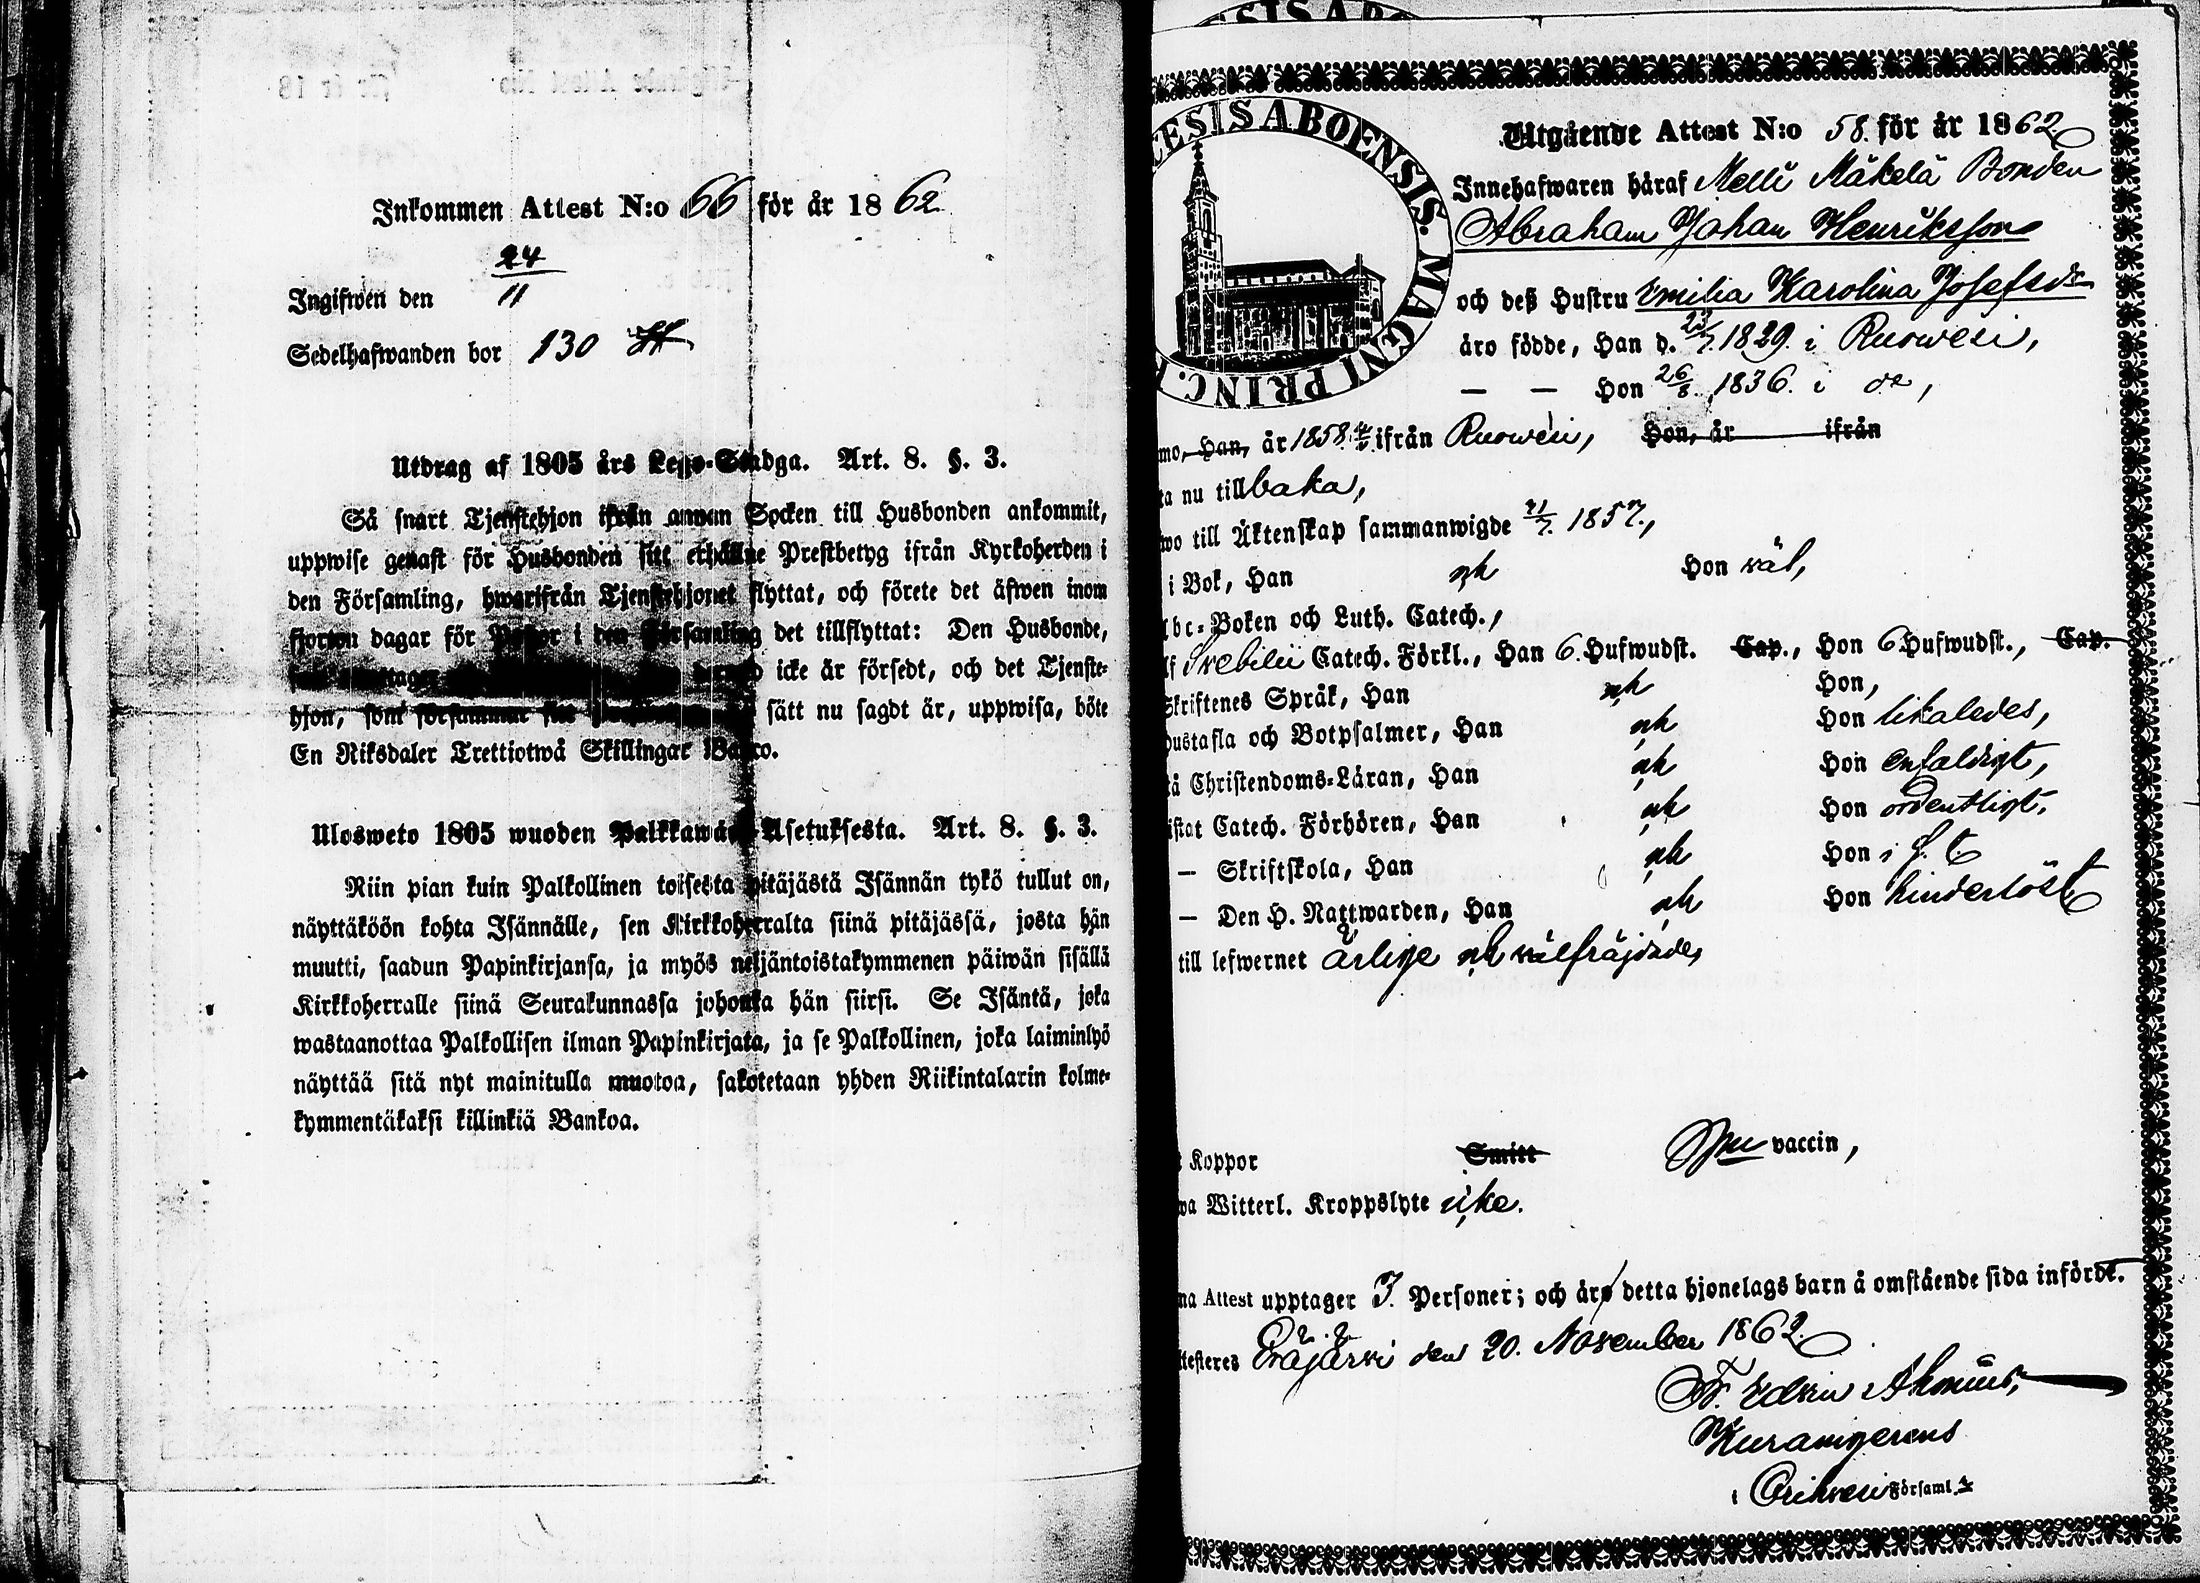 Inkommen Attest N:o 66 för år 1862.
24
11
Ingifwen den
Sedelhafwanden bor 130
Utdrag af 1805 års Lego-Stadga. Art. 8. §. 3.
Så snart Tjenstehjon ifrån annan Socken till Husbonden ankommit,
uppwise genast för Husbonden sitt erhållne Prestbetyg ifrån Kyrkoherden i
den Församling, hwarifrån Tjenstehjonet flyttat, och förete det äfwen inom
fjorton dagar för Pastor i den Församling det tillflyttat: Den Husbonde,
icke är försedt, och det Tjenste-
hjon, som försummar sätt nu sagdt är, uppwisa, böte
En Riksdaler Trettiotwå Skillingar Banco.
Ulosweto 1805 wuoden Palkkawäen-Asetuksesta. Art. 8. §. 3.
Niin pian kuin Palkollinen toisesta pitäjästä Isännän tykö tullut on,
näyttäköön kohta Isännälle, sen Kirkkoherralta siinä pitäjässä, josta hän
muutti, saadun Papinkirjansa, ja myös neljäntoistakymmenen päiwän sisällä
Kirkkoherralle siinä Seurakunnassa johonka hän siirsi. Se Isäntä, joka
wastaanottaa Palkollisen ilman Papinkirjata, ja se Palkollinen, joka laiminlyö
näyttää sitä nyt mainitulla muotoa, sakotetaan yhden Riikintalarin kolme-
kymmentäkaksi killinkiä Bankoa.
ECESIS ABOENSIS. MAGNI PRINC.
Utgående Attest N:o 58. för år 1862.
Innehafwaren häraf Melli Mäkelä Bonden
Abraham Johan Henriksson
och deß Hustru Emilia Karolina Josefsdr
äro födde, Han d. 1829. i Ruowesi,
— — Hon 26/8. 1836. i do,
mo, Han, år 1858 ifrån Ruowesi, Hon, år ifrån
ta nu tillbaka,
wo till Äktenskap sammanwigde 21/7. 1857.,
i Bok, Han och Hon wäl,
Abc-Boken och Luth. Catech.,
lf Svebilii Catech. Förkl., Han 6. Hufwudst. Cap., Hon 6 Hufwudst., Cap.
Skriftenes Språk, Han och Hon,
Hustafla och Botpsalmer, Han och Hon likaledes,
tå Christendoms-Läran, Han och Hon enfaldigt,
istat Catech. Förhören, Han och Hon ordentligt,
— Skriftskola, Han och Hon i s. t.
— Den H. Nattwarden, Han och Hon hinderlöst
till lefwernet ärlige och wälfräjdade,
t Koppor Smitt vaccin,
wa Witterl. Kroppslyte icke.
na Attest upptager 3. Personer; och äro detta hjonelags barn å omstående sida införde.
ttesteres Eräjärvi den 20. November 1862.
Fr. Edvin
i Orihvesi Församl.